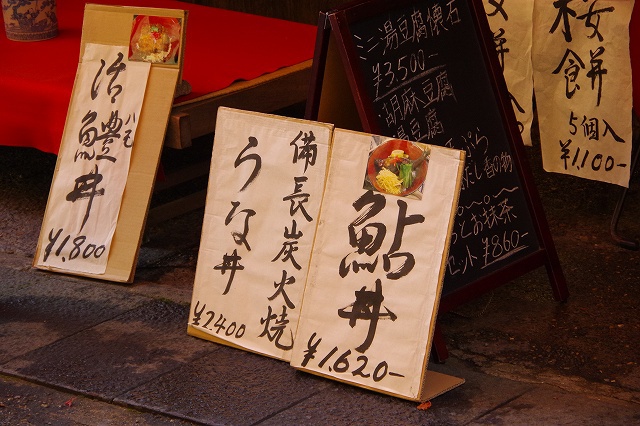 活鱧丼
ハモ
¥1,800
備長炭火焼
うな丼
¥2.400
鮎丼
¥1.620-
ミニ湯豆腐懐石
¥3,500-
胡麻豆腐
湯豆腐
香の物
お抹茶
セット ¥860-
桜食餅
5個入
¥1,100-